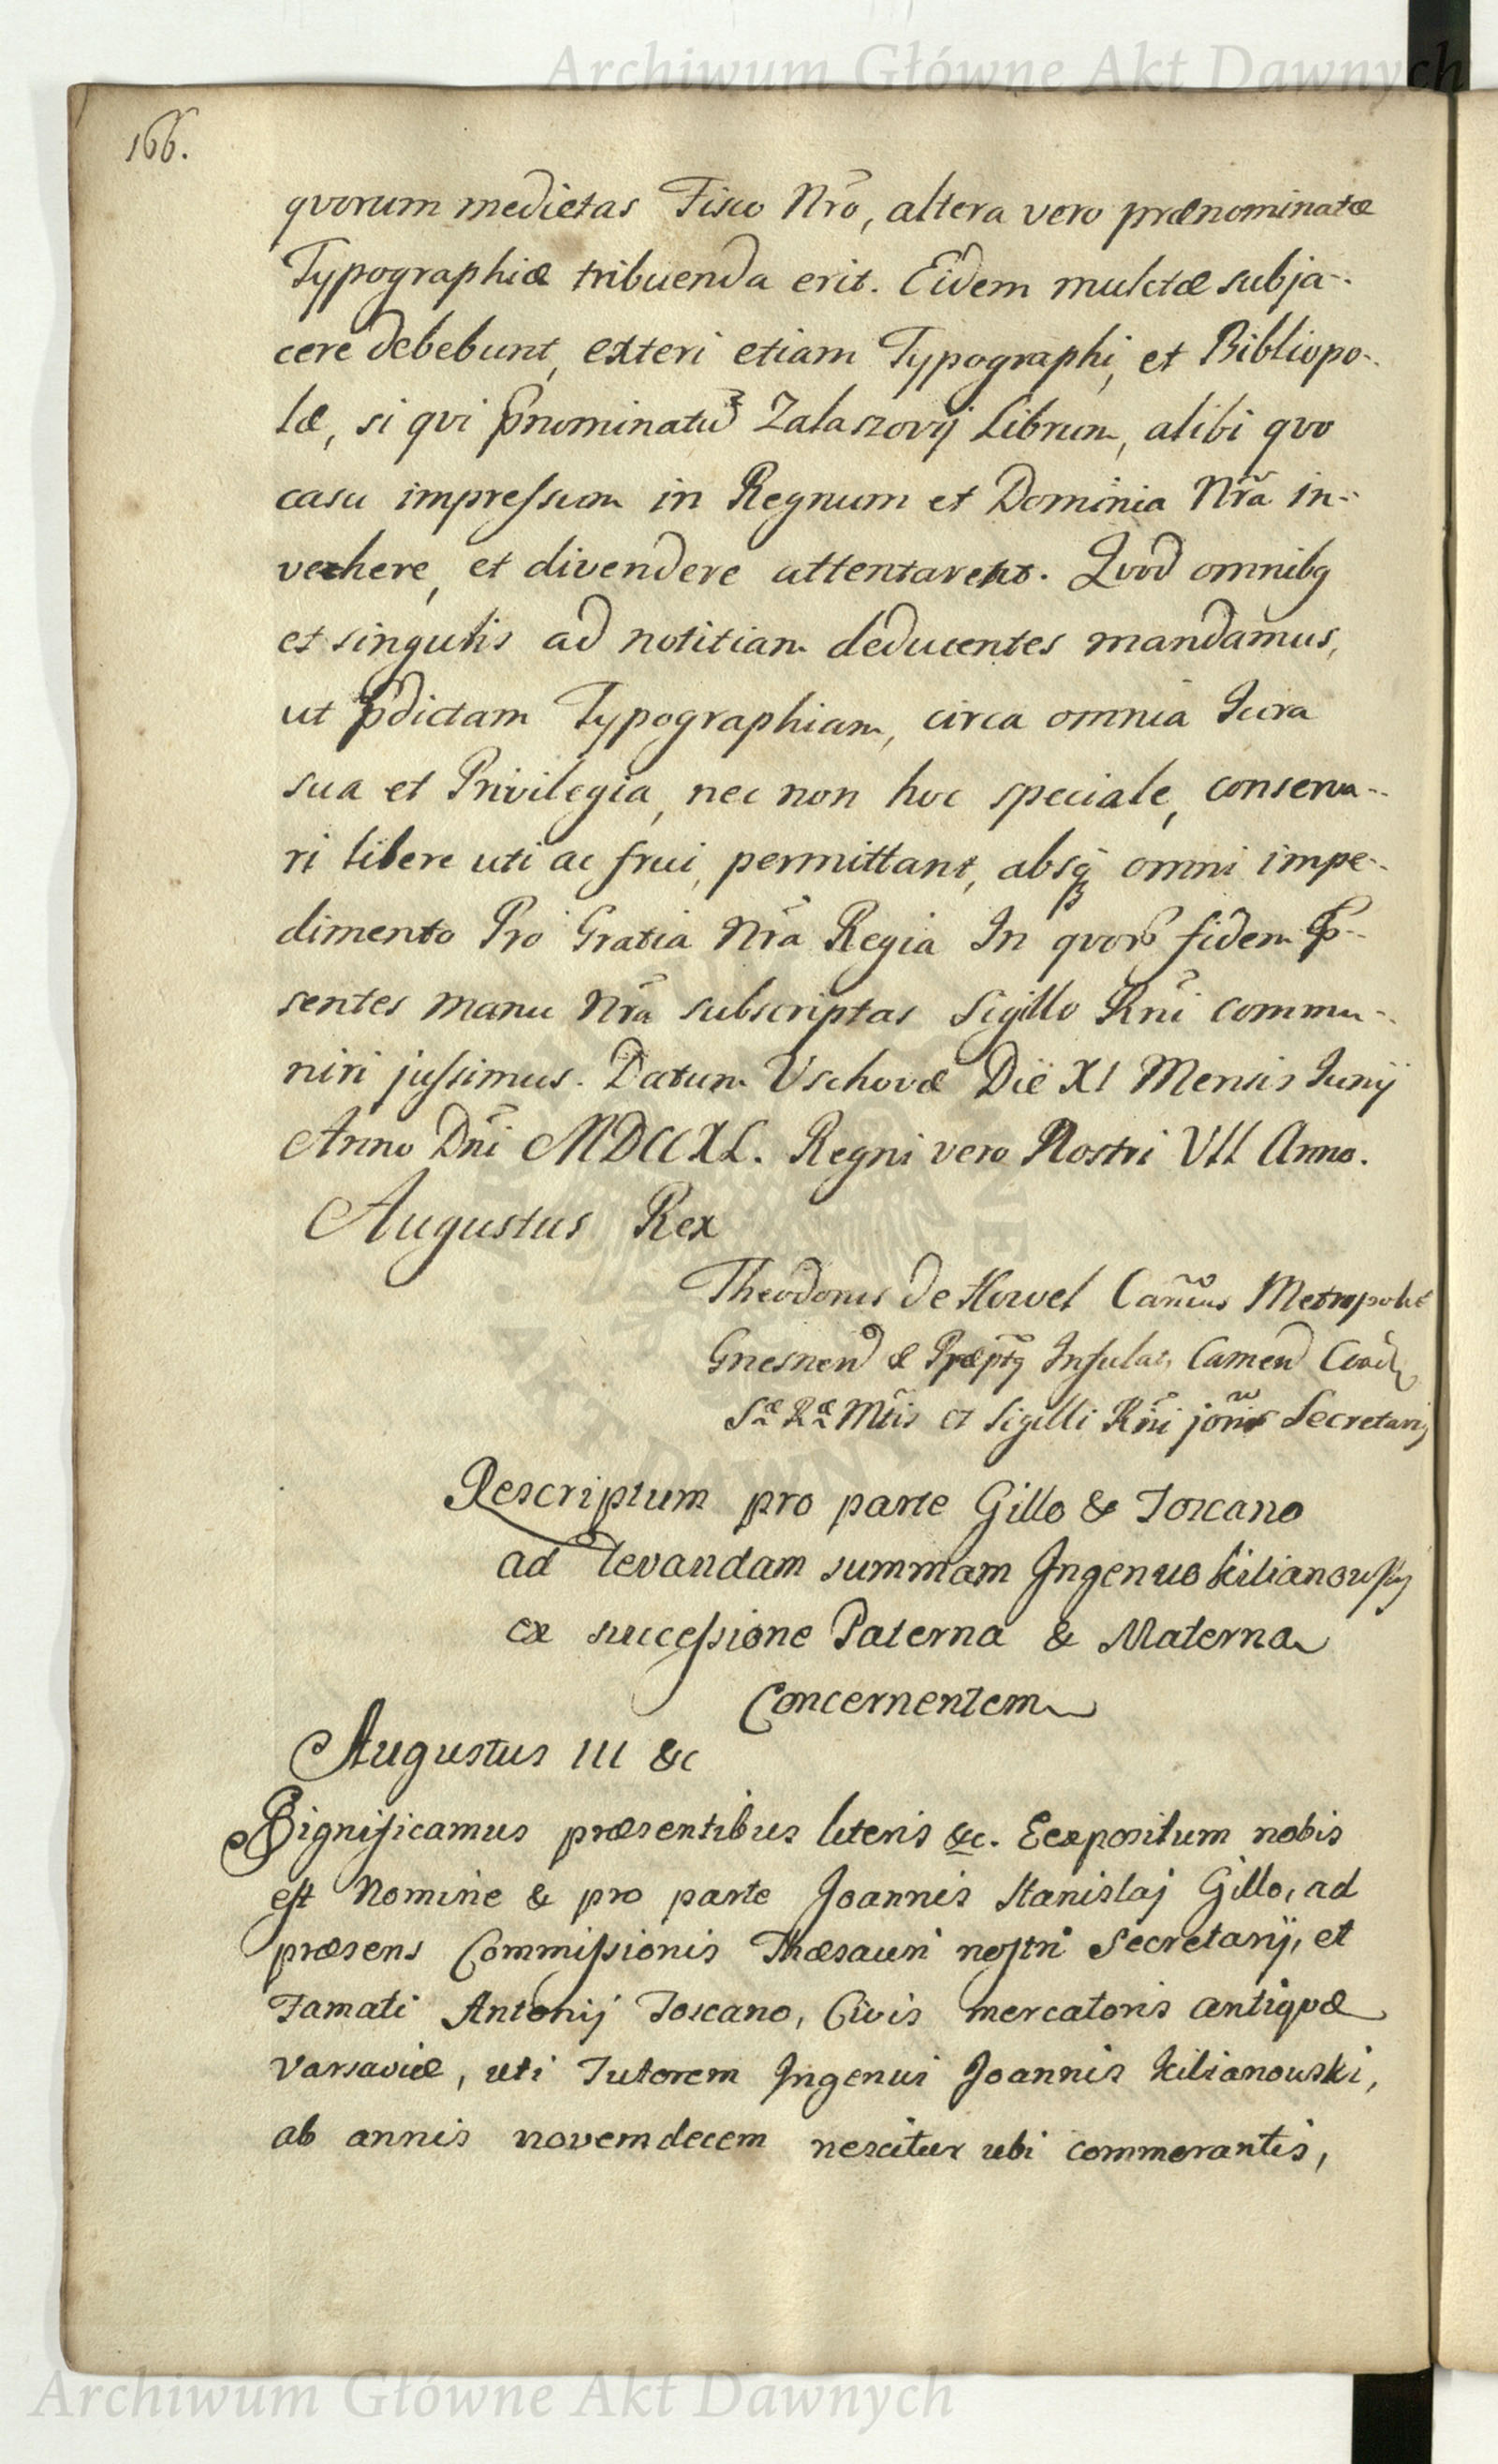 Archiwum Główne Akt Dawnych
166.
qvorum medietas Fisco Nro, altera vero prænominatæ
Typographiæ tribuenda erit. Eidem mulctæ subja-
cere debebunt, exteri etiam Typographi, et Bibliopo-
læ, si qvi pnominatu Zalaszovij Librum, alibi qvo
casu impressum in Regnum et Dominia Nra in-
vechere, et divendere attentarent. Qvod omnibq
et singulis ad notitiam deducentes mandamus,
ut pdictam Typographiam, circa omnia Jura
sua et Privilegia, nec non hoc speciale, conserva-
ri libere uti ac frui, permittant, absq omni impe-
dimento Pro Gratia Nra Regia In qvor fidem p-
sentes manu Nra subscriptas Sigillo Rni commu-
niri jussimus. Datum Vschovæ Die XI Mensis Junij
Anno Dni MDCCXL. Regni vero Nostri VII Anno.
Augustus Rex
Theodorus de Howel Cancus Metropolis
Gnesnen & Præptq Insulat, Camen
Sæ Ræ Mtis et Sigilli Rni Secretarij
Rescriptum pro parte Gillo & Toscano
ad levandam summam Ingenuo Kilianowsky
ex successione Paterna & Materna
Concernentem
Augustus III &c
Significamus præsentibus literis &c. Eexpositum nobis
est Nomine & pro parte Joannis Stanislaj Gillo, ad
præsens Commissionis Thæsauri nostri Secretarij, et
Famati Antonij Toscano, Civis mercatoris antiqvæ
Varsaviæ, uti Tutorem Ingenui Joannis Kilianouski,
ab annis novemdecem nescitur ubi commorantis,
Archiwum Główne Akt Dawnych